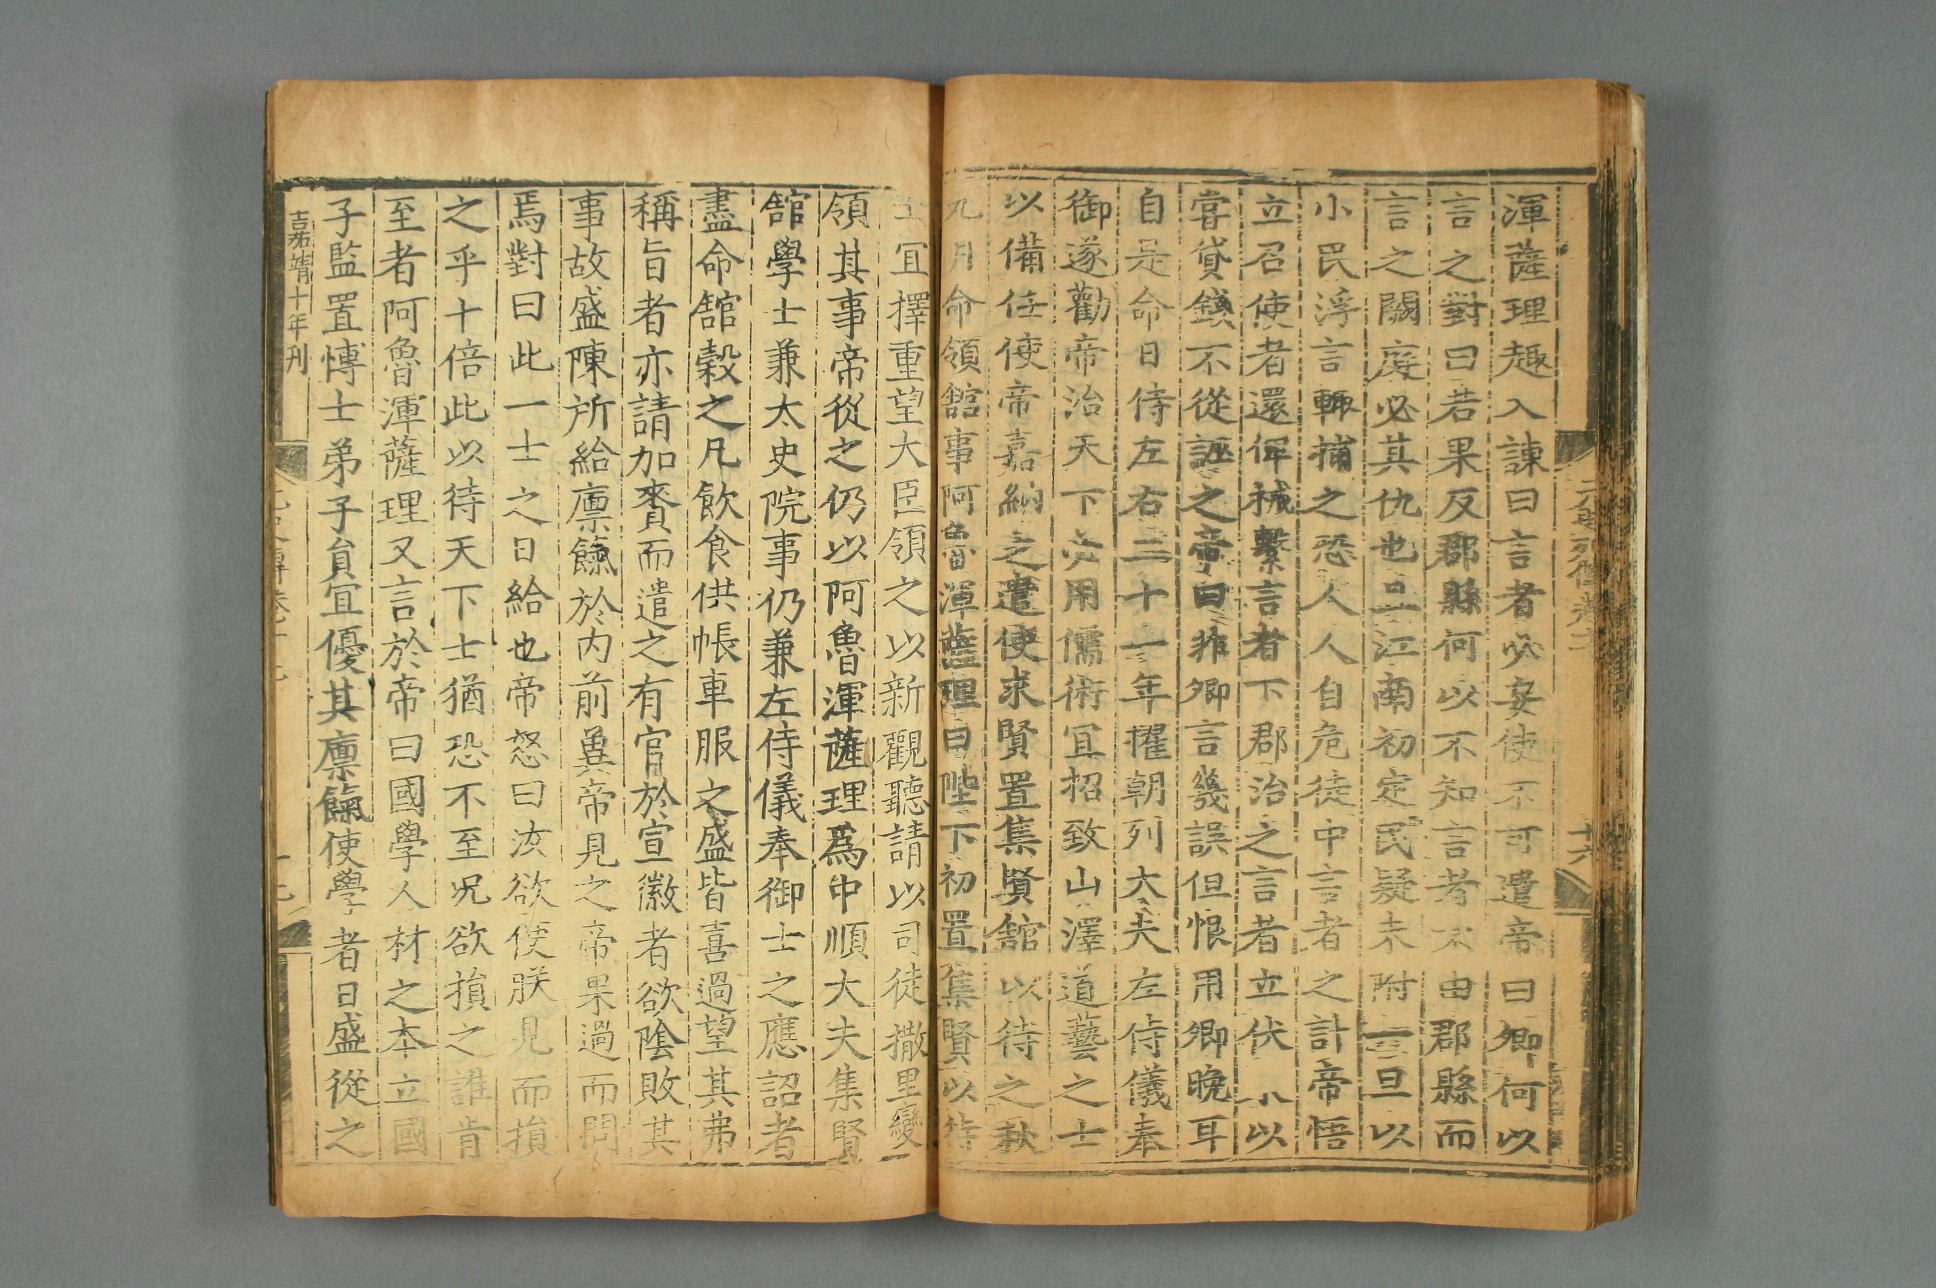 渾薩理趣入諫曰言者必妄使不可遣帝曰卿何以
言之對曰若果反郡縣何以不知言者不由郡縣而
言之闕庭必其仇也且江南初定民疑未附一旦以
小民浮言輒捕之恐人人自危徒中言者之計帝悟
立召使者還俾械繫言者下郡治之言者立伏以
嘗貸錢不從誣之帝曰非卿言幾誤但恨用卿晚耳
自是命日侍左右二十一年擢朝列大夫左侍儀奉
御遂勸帝治天下必用儒術宜招致山澤道藝之士
以備任使帝嘉納之遣使求賢置集賢館以待之秋
九月命領館事阿魯渾薩理曰陛下初置集賢以待
士宜擇重望大臣領之以新觀聽請以司徒撒里蠻
領其事帝從之仍以阿魯渾薩理爲中順大夫集賢
館學士兼太史院事仍兼左侍儀奉御士之應詔者
盡命館穀之凡飲食供帳車服之盛皆喜過望其弗
稱旨者亦請加賚而遣之有官於宣徽者欲陰敗其
事故盛陳所給廩餼於内前冀帝見之帝果過而問
焉對曰此一士之日給也帝怒曰汝欲使朕見而損
之乎十倍此以待天下士猶恐不至況欲損之誰肯
至者阿魯渾薩理又言於帝曰國學人材之本立國
子監置博士弟子員宜優其廩餼使學者日盛從之
嘉靖十年刊
元史傳卷十七
十七